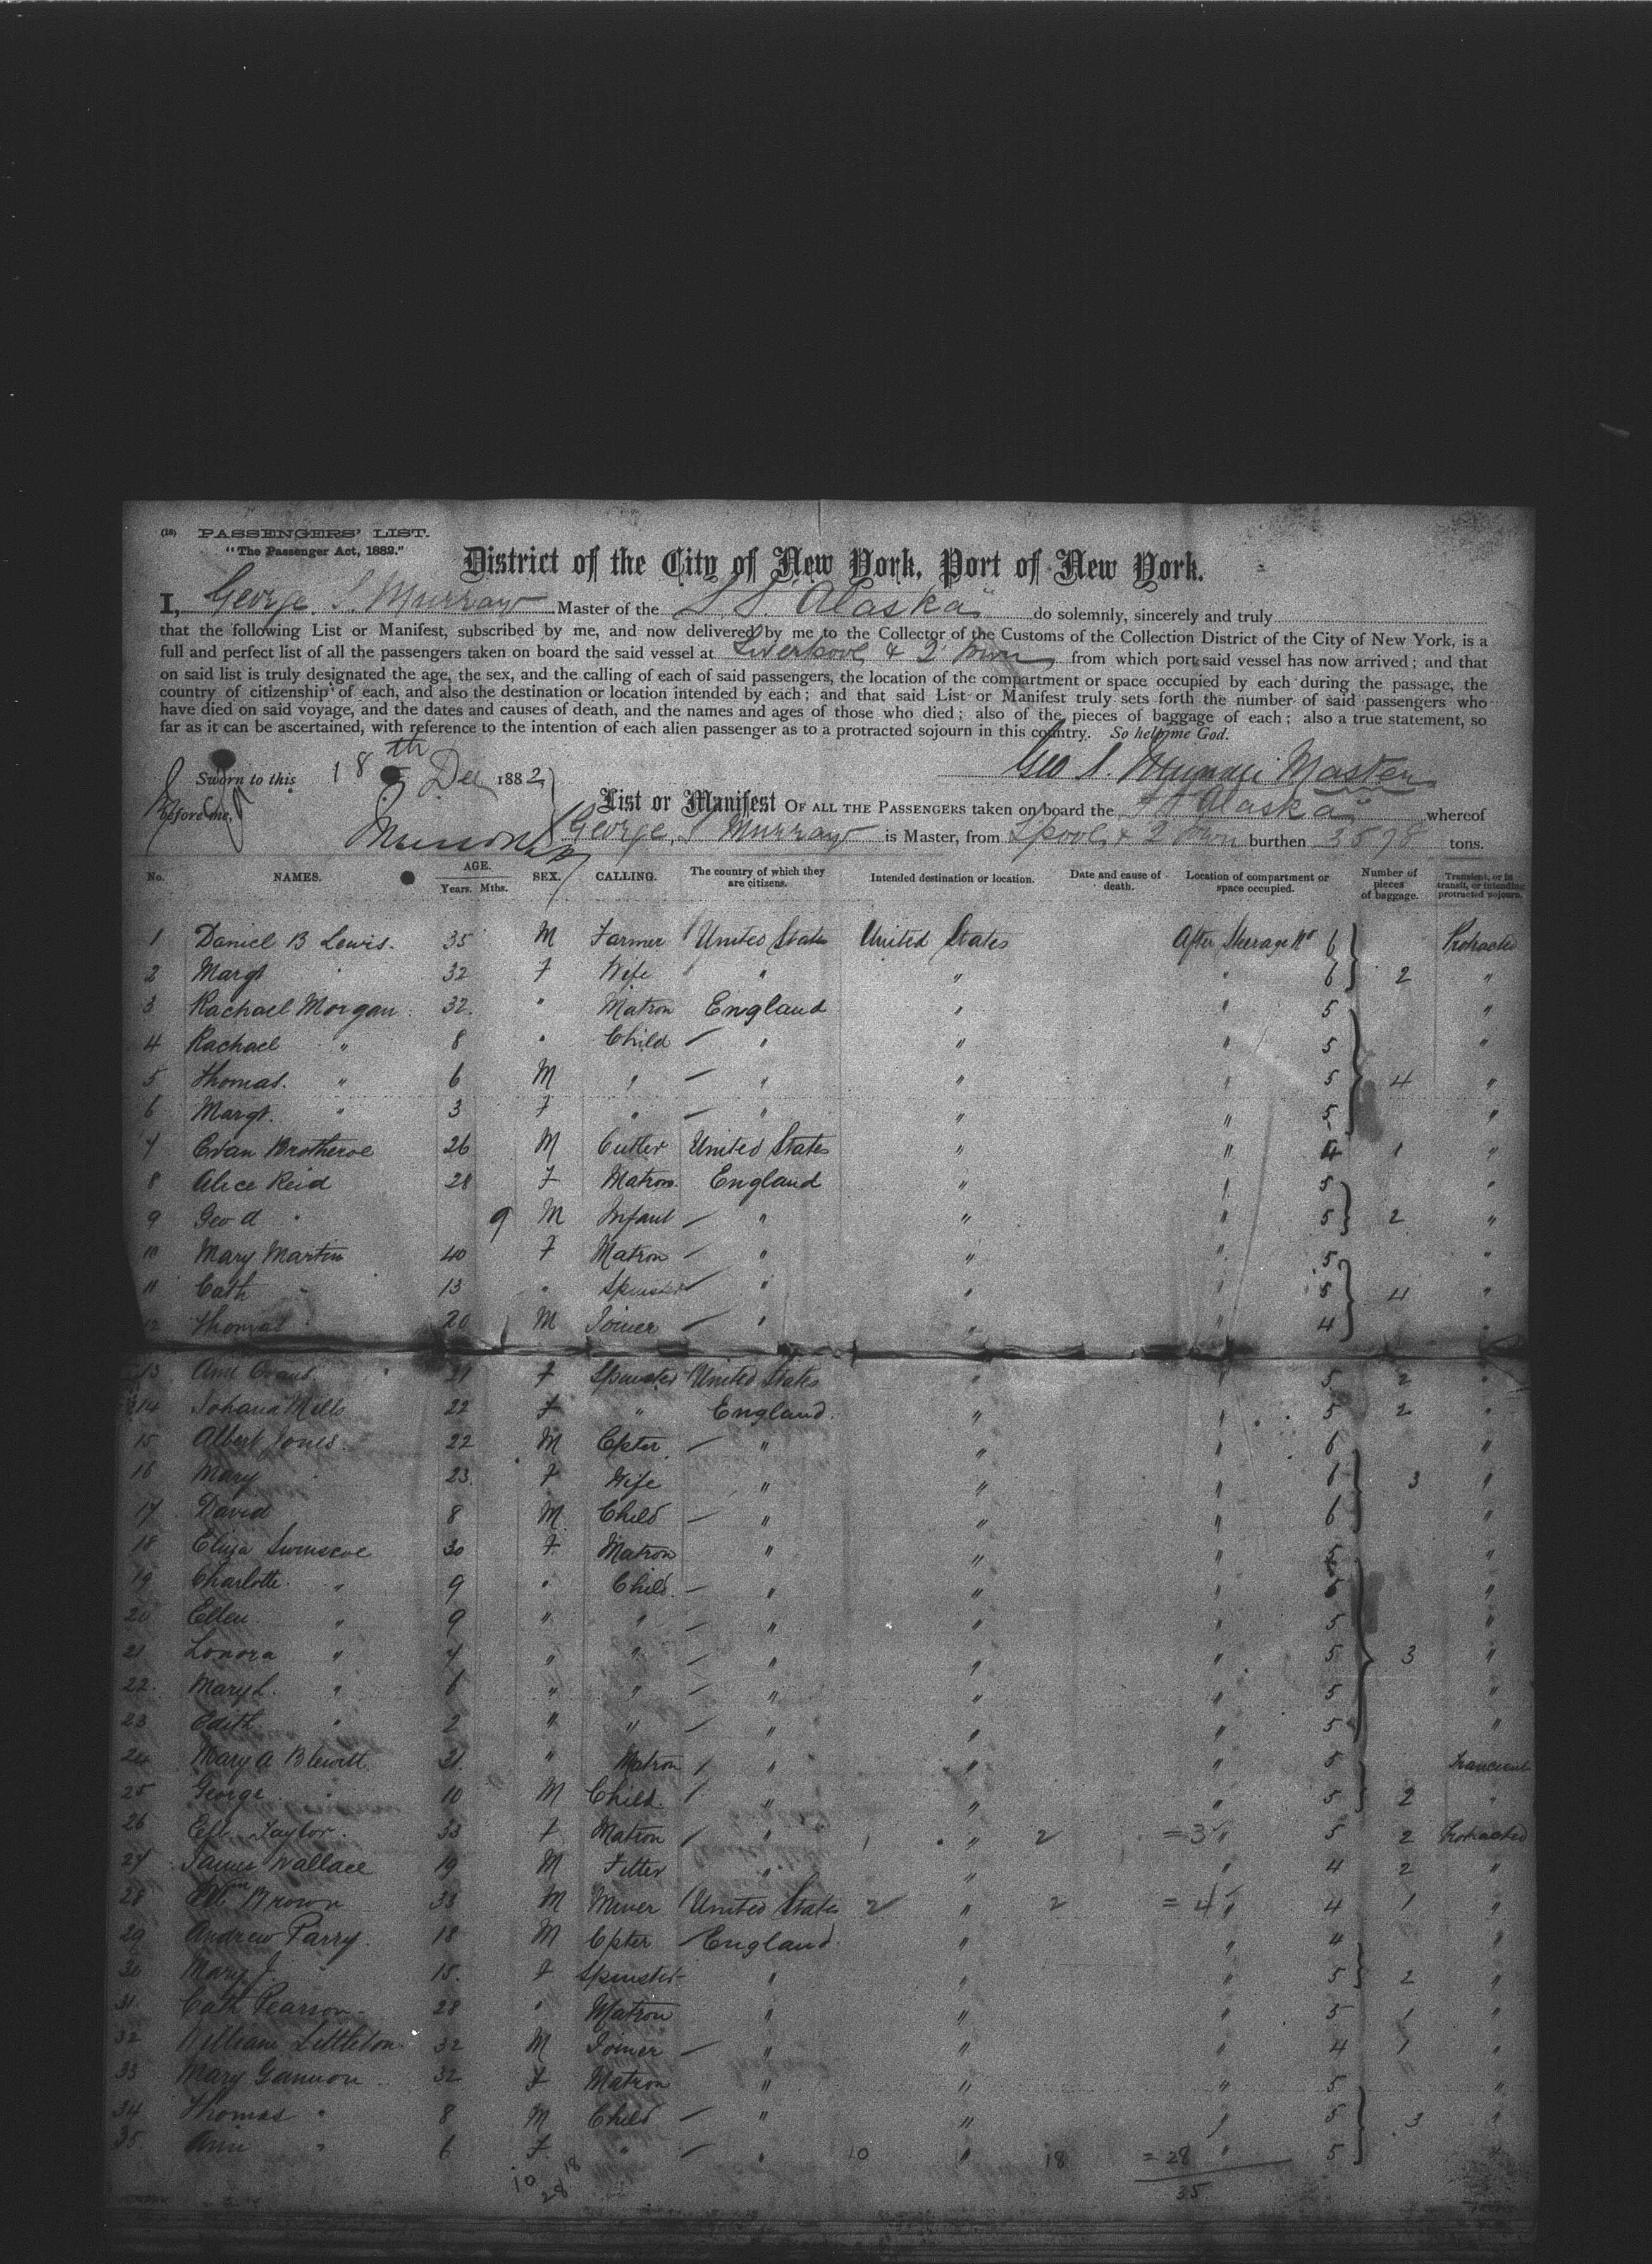 (18) PASSENGERS' LIST.
"The Passenger Act, 1882."
District of the City of New York, Port of New York.
I, George S. Murray Master of the S.S. "Alaska" do solemnly, sincerely and truly
that the following List or Manifest, subscribed by me, and now delivered by me to the Collector of the Customs of the Collection District of the City of New York, is a
full and perfect list of all the passengers taken on board the said vessel at Liverpool & Q Town from which port said vessel has now arrived; and that
on said list is truly designated the age, the sex, and the calling of each of said passengers, the location of the compartment or space occupied by each during the passage, the
country of citizenship of each, and also the destination or location intended by each; and that said List or Manifest truly sets forth the number of said passengers who
have died on said voyage, and the dates and causes of death, and the names and ages of those who died; also of the pieces of baggage of each; also a true statement, so
far as it can be ascertained, with reference to the intention of each alien passenger as to a protracted sojourn in this country. So help me God.
Sworn to this 18th Dec 1882
Geo S. Murray Master
before me,
List or Manifest OF ALL THE PASSENGERS taken on board the S S Alaska whereof
George S Murray is Master, from Lpool & Q Town burthen 3578 tons.
No. NAMES. AGE. Years. Mths. SEX. CALLING. The country of which they are citizens. Intended destination or location. Date and cause of death. Location of compartment or space occupied. Number of pieces of baggage. Transient, or in transit, or intending protracted sojourn.
1 Daniel B Lewis. 35 M Farmer United States United States After Steerage No 6 Protracted
2 Margt " 32 F Wife " " " 6 2 "
3 Rachael Morgan 32. " Matron England " " 5 "
4 Rachael " 8 " Child " " " 5 "
5 Thomas. " 6 M " " " " 5 4 "
6 Margt. " 3 F " " " " 5 "
7 Evan Brotheroe 26 M Cutler United States " " 4 1 "
8 Alice Reid 28 F Matron. England " " 5 "
9 Geo A " 9 M Infant " " " 5 2 "
10 Mary Martin 40 F Matron " " " 5 "
11 Cath " 13 " Spinster " " " 5 4 "
12 Thomas " 20 M Joiner " " " 4 "
13 Ann Evans 21 F Spinster United States " " 5 2 "
14 Johana Mills 22 F " England. " " 5 2 "
15 Albert Jones. 22 M Cpter " " " 6 "
16 Mary " 23. F Wife " " " 6 3 "
17 David 8 M Child " " " 6 "
18 Eliza 30 F Matron " " " 5 "
19 Charlotte. " 9 " Child. " " " 5 "
20 Ellen. " 9 " " " " " 5 "
21 Lonora " 7 " " " " " 5 3 "
22. Mary L. " 6 " " " " " 5 "
23 Edith " 2 " " " " " 5 "
24 Mary A Blewitt 31. " Matron " " " 5 Transient
25 George " 10 M Child. " " " 5 2 "
26 Taylor. 33 F Matron " 1 " 2 =3 " 5 2 Protracted
27 James Wallace 19 M Fitter " " " 4 2 "
28 Wm Brown 33 M Miner United States 2 " 2 =4 " 4 1 "
29 Andrew Parry. 18 M Cpter England " " 4 "
30 Mary J. " 15. F Spinster " " " 5 2 "
31 Cath Pearson 28 " Matron " " " 5 1 "
32 William Littleton 32 M Joiner " " " 4 1 "
33 Mary Gannon 32 F Matron " " " 5 "
34 Thomas " 8 M Child " " " 5 3 "
35. Ann " 6 F " " 10 " 18 =28 " 5 "
10 18
28
35